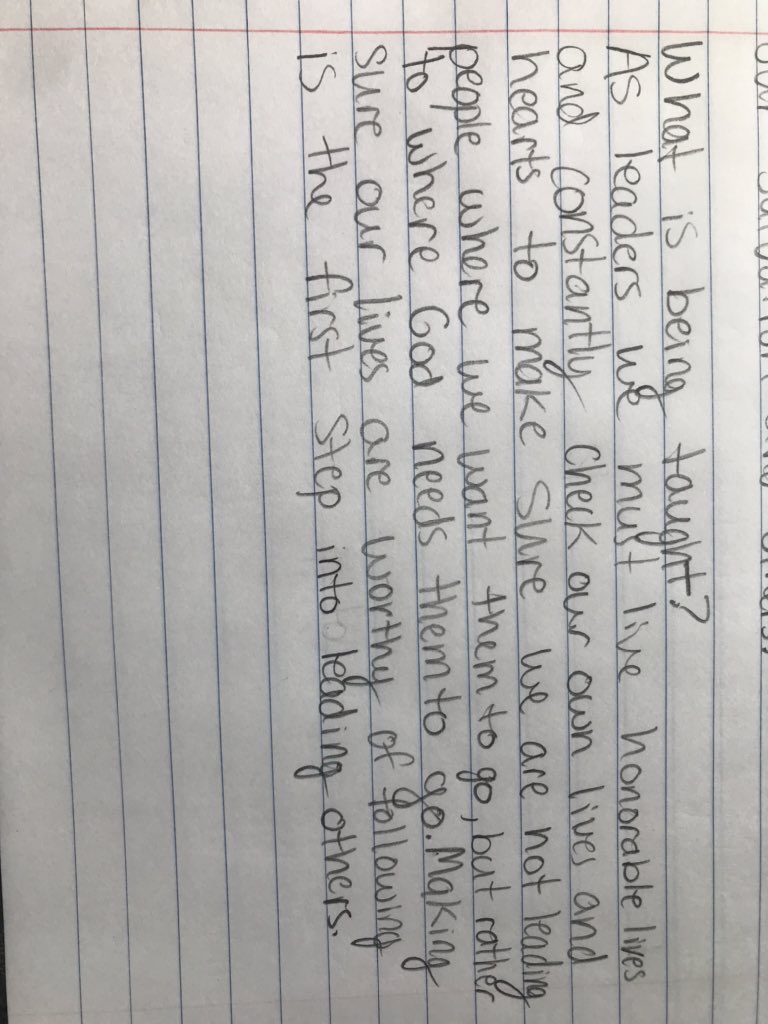 What is being taught?
As leaders we must live honorable lives
and constantly check our own lives and
hearts to make sure we are not leading
people where we want them to go, but rather
to where God needs them to go. Making
sure our lives are worthy of following
is the first step into leading others.